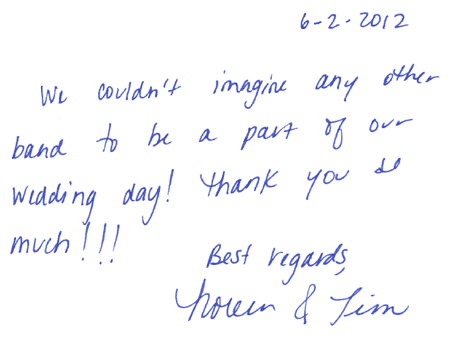 6-2-2012
We couldn't imagine any other
band to be a part of our
wedding day! Thank you so
much!!!
Best regards,
Noreen & Jim